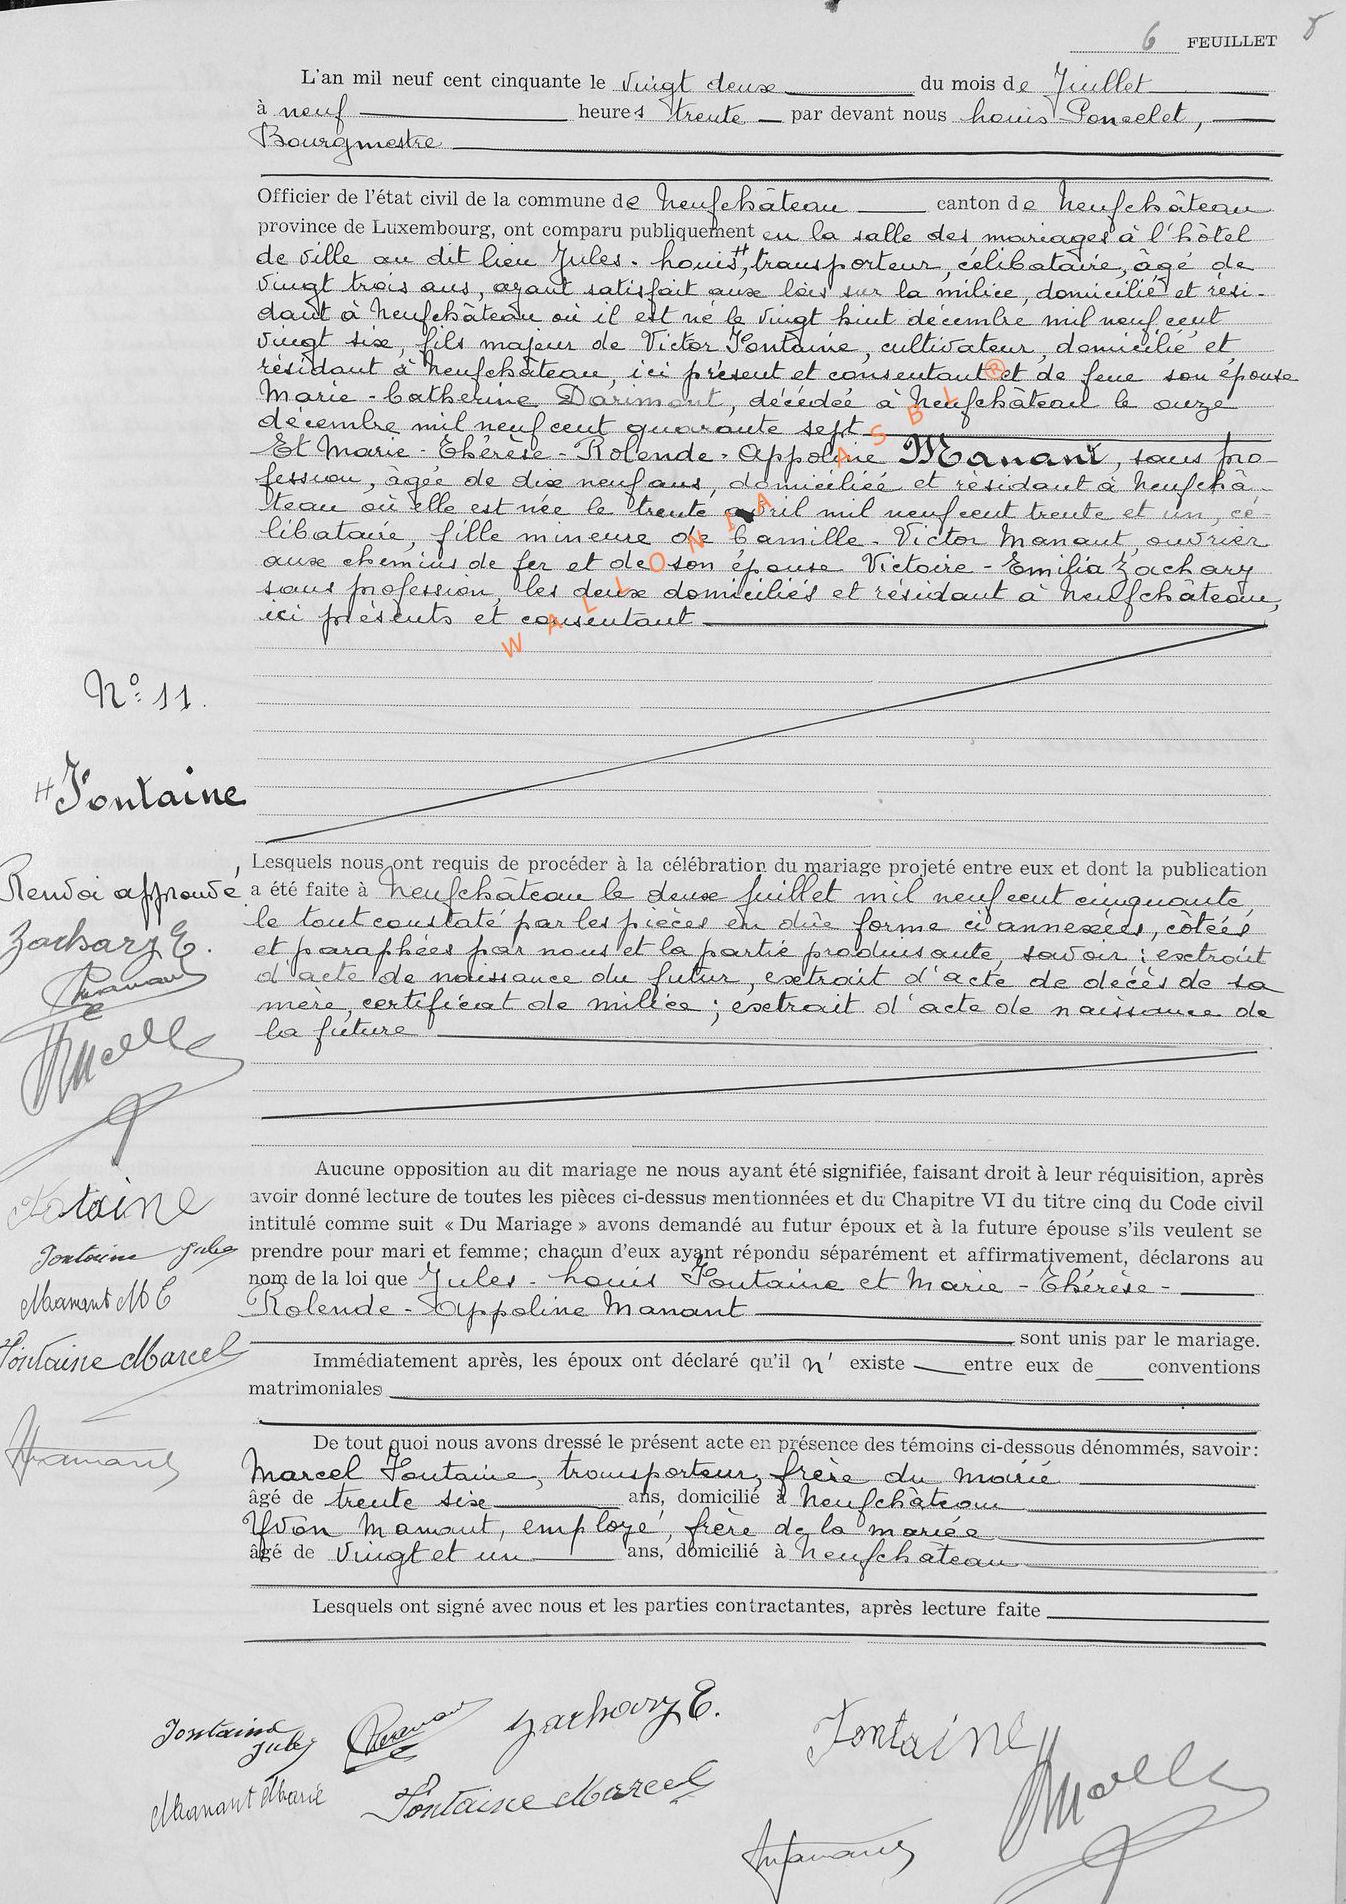 6 FEUILLET 8
L'an mil neuf cent cinquante le vingt deux du mois de Juillet
à neuf heures trente par devant nous Louis Poncelet,
Bourgmestre
Officier de l'état civil de la commune de Neufchâteau canton de Neufchâteau
province de Luxembourg, ont comparu publiquement en la salle des mariages à l'hôtel
de ville au dit lieu Jules-Louis H, transporteur, célibataire, âgé de
vingt trois ans, ayant satisfait aux lois sur la milice, domicilié et rési-
dant à Neufchâteau où il est né le vingt huit décembre mil neuf cent
vingt six, fils majeur de Victor Fontaine, cultivateur, domicilié et
résidant à Neufchâteau, ici présent et consentant et de feue son épouse
Marie-Catherine Darimont, décédée à Neufchâteau le onze
décembre mil neuf cent quarante sept
Et Marie-Thérèse-Rolende-Appoline Manant, sans pro-
fession, âgée de dix neuf ans, domiciliée et résidant à Neufchâ-
teau où elle est née le trente avril mil neuf cent trente et un, cé-
libataire, fille mineure de Camille-Victor Manant, ouvrier
aux chemins de fer et de son épouse Victoire-Emilia Zachary
sans profession, les deux domiciliés et résidant à Neufchâteau,
ici présents et consentant
WALLONIA ASBL ®
N° 11.
H Fontaine
Renvoi approuvé
Zachary E.
Manant
Fontaine
Fontaine Jules
Manant M E
Fontaine Marcel
Manant
Lesquels nous ont requis de procéder à la célébration du mariage projeté entre eux et dont la publication
a été faite à Neufchâteau le deux juillet mil neuf cent cinquante,
le tout constaté par les pièces en dûe forme ci annexées, côtées
et paraphées par nous et la partie produisante, savoir : extrait
d'acte de naissance du futur, extrait d'acte de décès de sa
mère, certificat de milice ; extrait d'acte de naissance de
la future
Aucune opposition au dit mariage ne nous ayant été signifiée, faisant droit à leur réquisition, après
avoir donné lecture de toutes les pièces ci-dessus mentionnées et du Chapitre VI du titre cinq du Code civil
intitulé comme suit « Du Mariage » avons demandé au futur époux et à la future épouse s'ils veulent se
prendre pour mari et femme; chacun d'eux ayant répondu séparément et affirmativement, déclarons au
nom de la loi que Jules-Louis Fontaine et Marie-Thérèse-
Rolende-Appoline Manant
sont unis par le mariage.
Immédiatement après, les époux ont déclaré qu'il n' existe entre eux de conventions
matrimoniales
De tout quoi nous avons dressé le présent acte en présence des témoins ci-dessous dénommés, savoir :
Marcel Fontaine, transporteur, frère du marié
âgé de trente six ans, domicilié à Neufchâteau
Yvon Manant, employé, frère de la mariée
âgé de vingt et un ans, domicilié à Neufchâteau
Lesquels ont signé avec nous et les parties contractantes, après lecture faite
Fontaine Jules
Manant
Zachary E.
Fontaine
Manant Marie
Fontaine Marcel
Manant